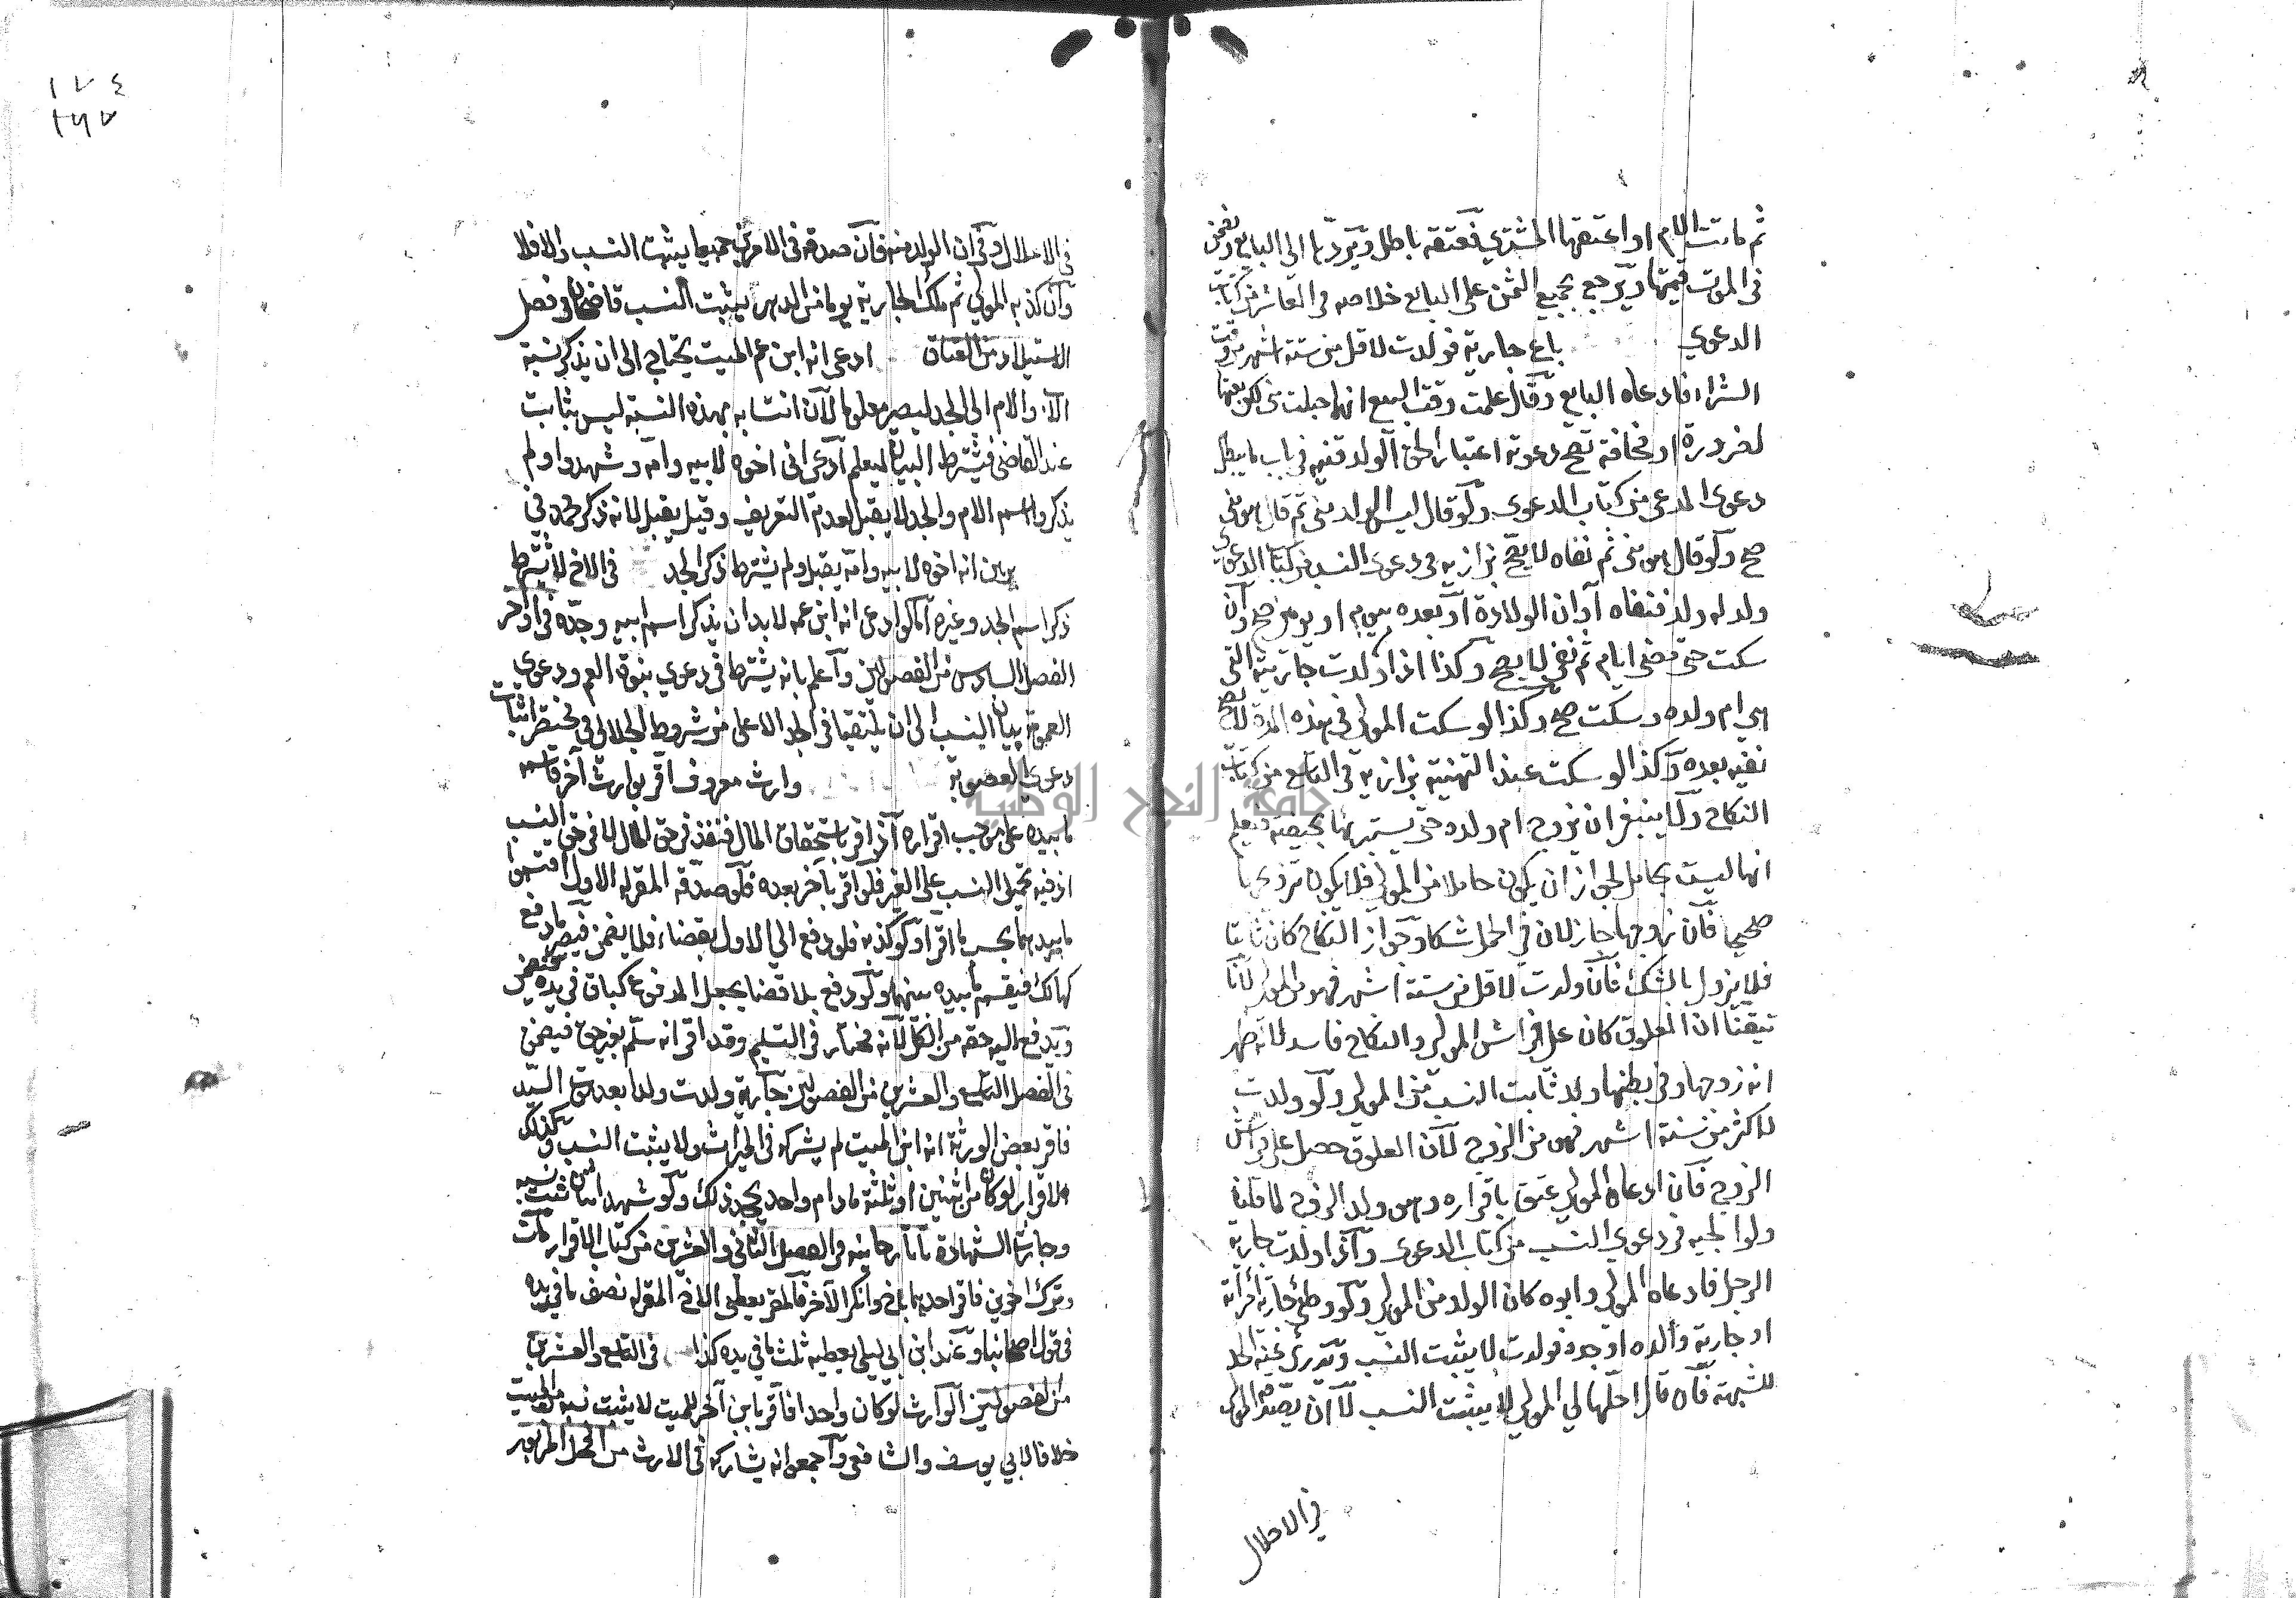 ثم ماتت الام او اعتقها المشتري فعتقه باطل ويردها الى البايع ويضمن
في الموت قيمتها ويرجع بجميع الثمن على البايع خلاصه في العاشر من كتاب
الدعوي باع جارية فولدت لاقل من ستة اشهر من وقت
الشراء فادعاه البايع وقال علمت وقت البيع انها حبلت مني لكن بعتها
لضرورة او مخافة تصح دعوته اعتبارا لحق الولد قنيه في باب ما يبطل
دعوى المدعي من كتاب الدعوى ولو قال ليس الولد مني ثم قال هو مني
صح ولو قال هو مني ثم نفاه لا يصح بزازيه في دعوى النسب من كتاب الدعوى
ولد له ولد فنفاه آوان الولادة او بعده بيوم او يومين صح وان
سكت حتى مضى ايام ثم نفى لا يصح وكذا اذا ولدت جاريته التي
هي ام ولده وسكت صح وكذا لو سكت المولى في هذه المدة لا يصح
نفيه بعده وكذا لو سكت عند التهنية بزازيه في التاسع من كتاب
النكاح ولا ينبغي ان يزوج ام ولده حتى يستبريها بحيضة فيعلم
انها ليست بحامل لجواز ان يكون حاملا من المولى فلا يكون تزويجها
صحيحا فان زوجها جاز لان في الحمل شكا وجواز النكاح كان ثابتا
فلا يزول بالشك فان ولدت لاقل من ستة اشهر فهو من المولى لانا
تيقنا ان العلوق كان على فراش المولى والنكاح فاسد لانه ظهر
انه زوجها وفي بطنها ولد ثابت النسب من المولى ولو ولدت
لاكثر من ستة اشهر فهو من الزوج لان العلوق حصل على فراش
الزوج فان ادعاه المولى عتق باقراره وهو ولد الزوج لما قلنا
ولوالجيه في دعوى النسب من كتاب الدعوى واذا ولدت جارية
الرجل فادعاه المولى وابوه كان الولد من المولى ولو وطئ جارية امرأته
او جارية والده او جده فولدت لا يثبت النسب ويدرئ عنه الحد
للشبهة فان قال احلها لي المولى لا يثبت النسب الا ان يصدقه المولى
في الاحلال
في الاحلال وفي ان الولد منه فان صدقه في الامرين جميعا يثبت النسب والا فلا
وان كذبه المولى ثم ملك الجارية يوما من الدهر يثبت النسب قاضيخان في فصل
الاستيلاد من العتاق ادعى انه ابن عم الميت يحتاج الى ان يذكر نسبة
الاب والام الى الجد ليصير معلوما لان انتسابه بهذه النسبة ليس بثابت
عند القاضي فيشترط البيان ليعلم ادعى اني اخوه لابيه وامه وشهدوا ولم
يذكروا اسم الام والجد لا يقبل لعدم التعريف وقيل يقبل لانه ذكر محمد في
برهن انه اخوه لابيه وامه يقبل ولم يشترط ذكر الجد في الاخ لا يشترط
ذكر اسم الجد وغيره اما لو ادعى انه ابن عمه لا بد ان يذكر اسم ابيه وجده في اواخر
الفصل السادس من الفصولين واعلم بانه يشترط في دعوي بنوة العم ودعوي
العمومة بيان النسب الى ان يلتقيا في الجد الاعلى من شروط الجلالي في مختصر اثبات
دعوي العصوبة وارث معروف اقر بوارث آخر قاسمه
ما بيده على موجب اقراره اذ اقر باستحقاق المال فنفذ في حق المال لا في حق النسب
اذ فيه تحميل النسب على الغير فلو اقر بآخر بعده فلو صدقه المقر له الاول اقتسموا
ما بيدهما بحسب ما اقر ولو كذبه فلو دفع الى الاول بقضاء فلا يضمن فيصير ما دفع
كهالك فيقسم ما بيده بينهما ولو دفع بلا قضا يجعل المدفوع كباق في يده فيضمن
ويدفع اليه حقه من الكل لانه مختار في التسليم وقد اقر انه سلم بغير حق فيضمن
في الفصل التاسع والعشرين من الفصولين جارية ولدت ولدا بعد موت السيد
فاقر بعض الورثة انه ابن الميت لم يشركه في الميراث ولا يثبت النسب وكذلك
الاقرار لو كان من اثنين او ثلثة ما دام واحد يجحد ذلك ولو شهد اثنان ثبت نسبه
وجازت الشهادة تاتارخانيه في الفصل الثاني والعشرين من كتاب الاقرار مات
وترك اخوين فاقر احدهما باخ وانكر الآخر فالمقر يعطي الاخ المقر له نصف ما في يده
في قول اصحابنا وعند ابن ابي ليلى يعطيه ثلث ما في يده كذا في التاسع والعشرين
من الفصولين الوارث لو كان واحدا فاقر بابن آخر للميت لا يثبت نسبه من الميت
خلافا لابي يوسف والشافعي واجمعوا انه يشاركه في الارث من المحل المزبور
١٧٤
١٦٧
جامعة النجاح الوطنية